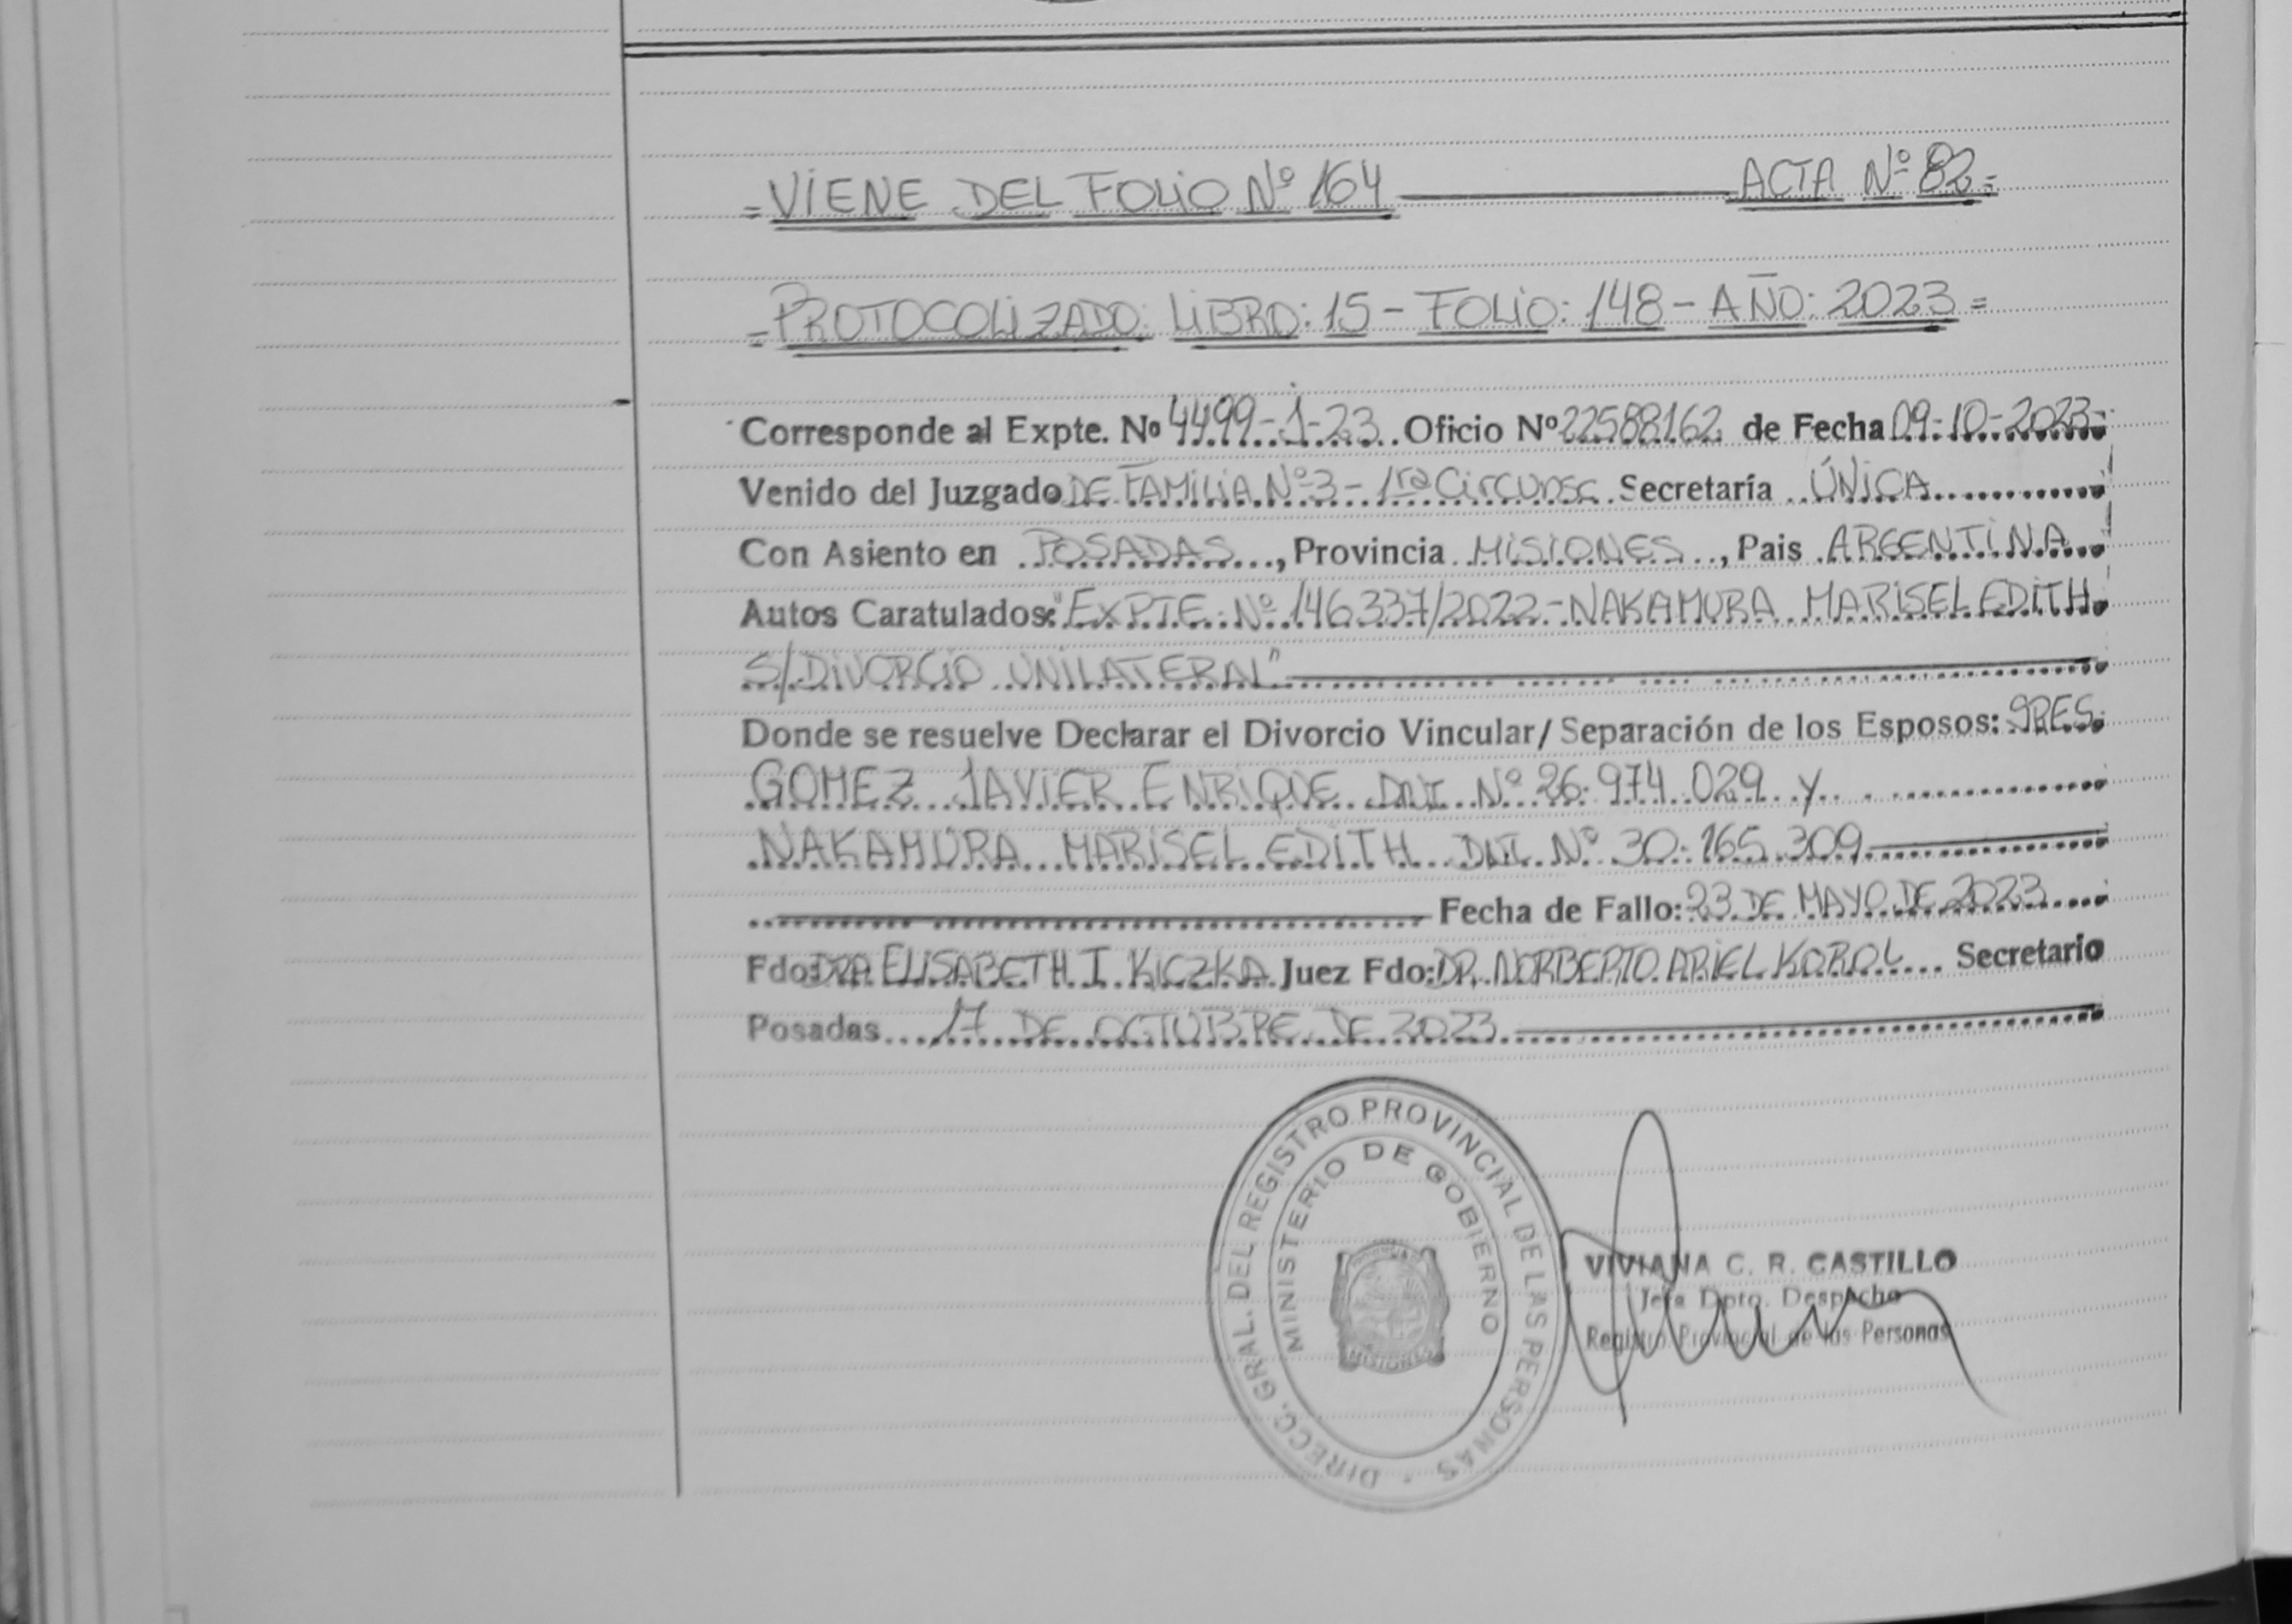 =VIENE DEL FOLIO Nº 164 ACTA Nº 82=
=PROTOCOLIZADO: LIBRO: 15 - FOLIO: 148 - AÑO: 2023=
Corresponde al Expte. Nº 4499-1-23 Oficio Nº 22588162 de Fecha 09-10-2023-
Venido del Juzgado DE FAMILIA Nº 3 - 1ra Circunsc. Secretaría ÚNICA
Con Asiento en POSADAS, Provincia MISIONES, Pais ARGENTINA
Autos Caratulados: "EXPTE. Nº 146337/2022-NAKAMURA MARISEL EDITH
S/DIVORCIO UNILATERAL"
Donde se resuelve Declarar el Divorcio Vincular/Separación de los Esposos: SRES.
GOMEZ JAVIER ENRIQUE DNI Nº 26.974.029 y
NAKAMURA MARISEL EDITH DNI. Nº 30.165.309
Fecha de Fallo: 23 DE MAYO DE 2023
Fdo: DRA. ELISABETH I. KICZKA Juez Fdo: DR. NORBERTO ARIEL KOROL Secretario
Posadas 17 DE OCTUBRE DE 2023
DIRECC. GRAL. DEL REGISTRO PROVINCIAL DE LAS PERSONAS
MINISTERIO DE GOBIERNO
PROVINCIA
MISIONES
VIVIANA C. R. CASTILLO
Jefa Dpto. Despacho
Registro Provincial de las Personas